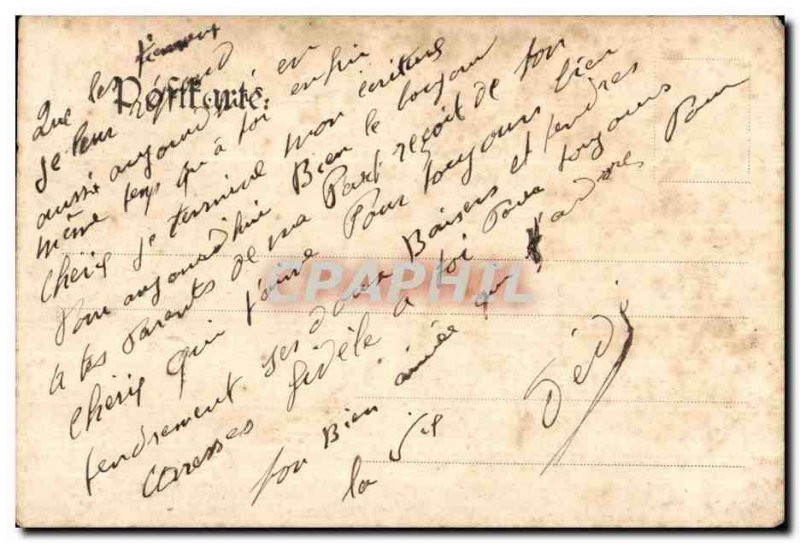 Que les tiennent
Postkarte.
je leur répond en
aussi aujourd'hui
même temps qu'à toi enfin
chéris je termine mon écriture
Pour aujourd'hui Bien le bonjour
a tes Parents de ma Part reçoit de ton
chéris qui t'aime Pour toujours bien
tendrement ses doux Baisers et tendres
caresses fidèle a toi Pour toujours
ton Bien aimée qui t'adore Pour
la vie
CPAPHIL